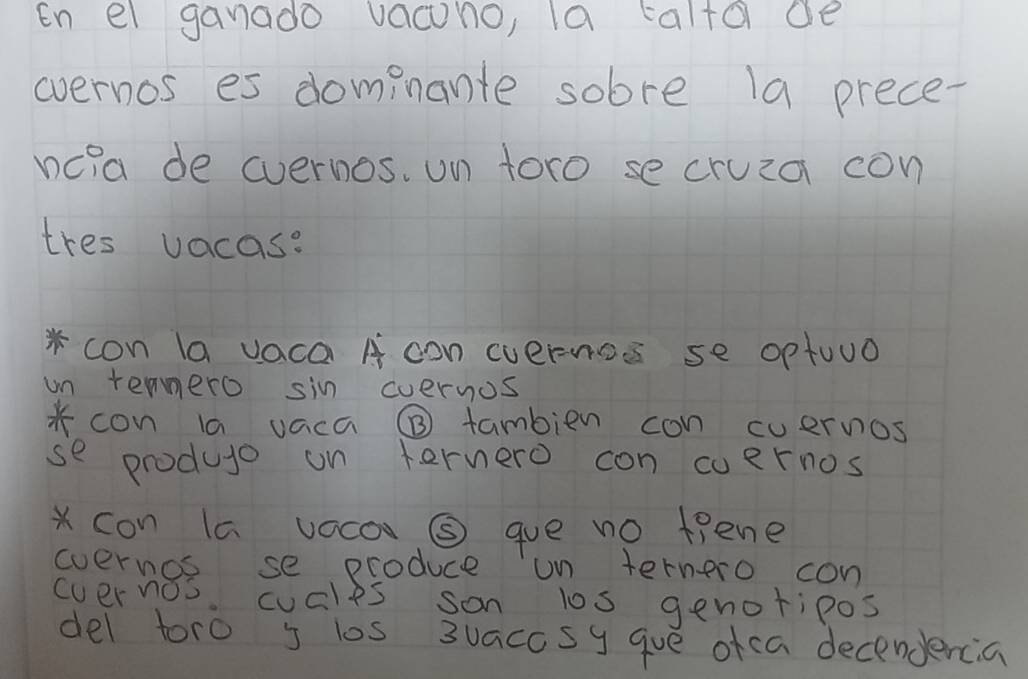 en el ganado vacuno, la falta de
cuernos es dominante sobre la prece-
ncia de cuernos. un toro se cruza con
tres vacas:
* con la vaca A con cuernos se optuvo
un ternero sin cuernos
* con la vaca Ⓑ tambien con cuernos
se produjo un ternero con cuernos
* con la vaca Ⓢ que no tiene
cuernos se produce un ternero con
cuernos. cuales son los genotipos
del toro y los 3 vacas y que otra decendencia